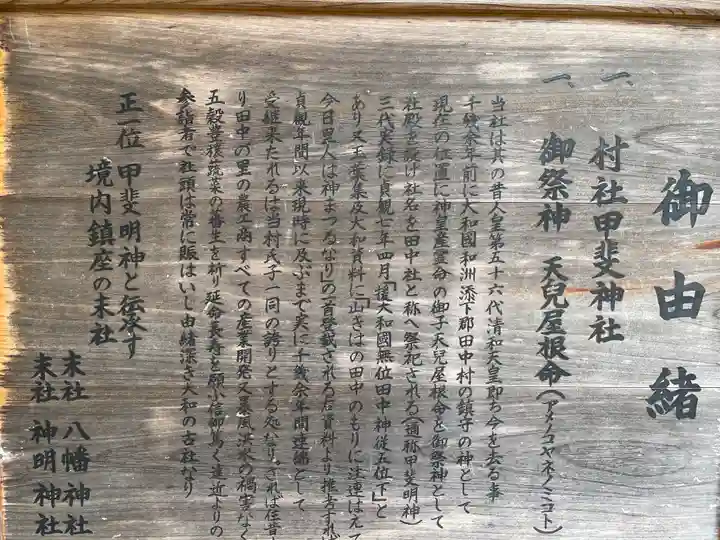 御由緒
一、村社甲斐神社
一、御祭神 天兒屋根命(アメノコヤネノミコト)
当社は其の昔人皇第五十六代清和天皇即ち今を去る事
千幾余年前に大和國和洲添下郡田中村の鎮守の神として
現在の位置に神皇産霊命の御子天兒屋根命を御祭神として
社殿を設け社名を田中社と称へ祭祀される(通称甲斐明神)
三代実録に貞観七年四月「援大和國無位田中神従五位下」と
あり又玉葉集及大和資料に「山きはの田中のもりに注連はえて
今日里人は神まつるなり」の一首登載される右資料より推考すれば
貞観年間以来現時に及ぶまで実に千幾余年間連綿として
受継来たれるは当村氏子一同の誇りとする処なり。されば往昔
り田中の里の農工商すべての産業開発又暴風洪水の禍害なく
五穀豊穣蔬菜の蕃生を祈り延命長寿を願ふ信仰篤く遠近よりの
参詣者で社頭は常に賑はいし由緒深き大和の古社なり
正一位 甲斐明神と伝承す
境内鎮座の末社
末社 八幡神社
末社 神明神社